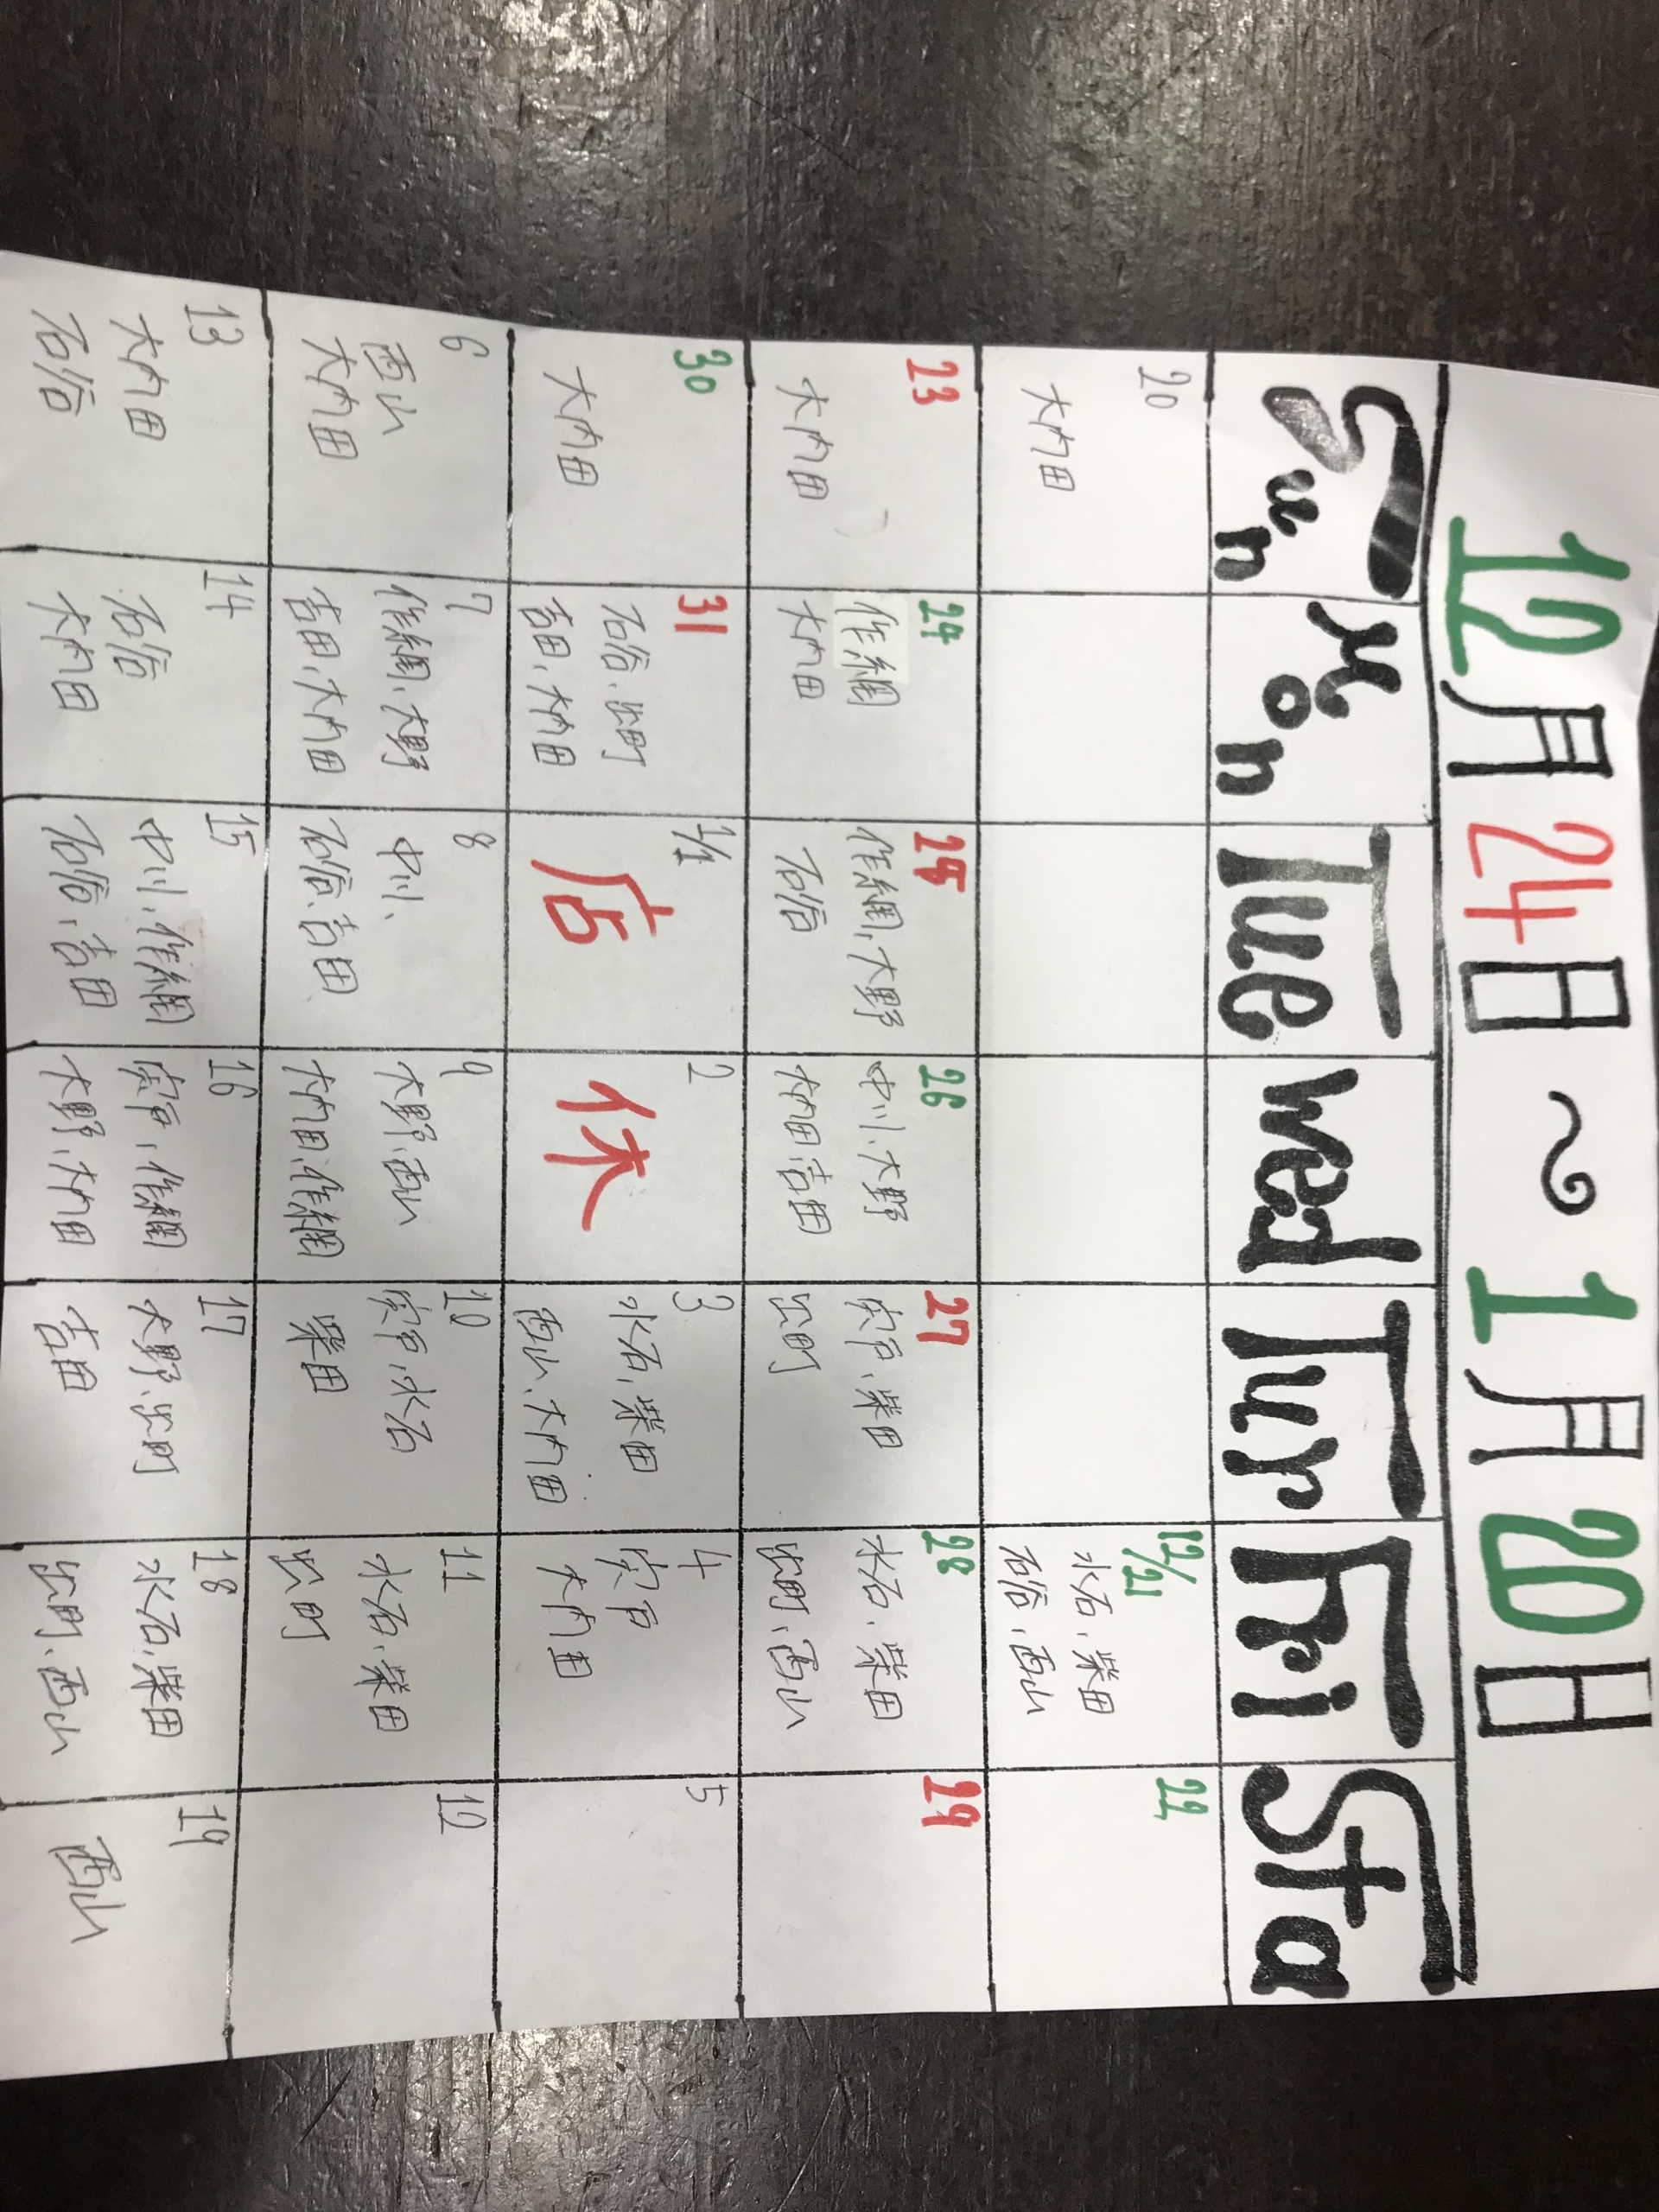 12月24日〜1月20日
Sun Mon Tue Wed Tur Fri Sta
20
大内田
12/21
水石、柴田
石倉、西山
22
23
大内田
24
大内田
25
大野
石倉
26
中川、大野
大内田、吉田
27
宍戸、柴田
出町
28
水石、柴田
出町、西山
29
30
大内田
31
石倉、出町
吉田、大内田
1/1
店
2
休
3
水石、柴田
西山、大内田
4
宍戸
大内田
5
6
西山
大内田
7
大野
吉田、大内田
8
中川、
石倉、吉田
9
大野、西山
大内田
10
宍戸、水石
柴田
11
水石、柴田
出町
12
13
大内田
石倉
14
石倉
大内田
15
中川、
石倉、吉田
16
宍戸、
大野、大内田
17
大野、出町
吉田
18
水石、柴田
出町、西山
19
西山